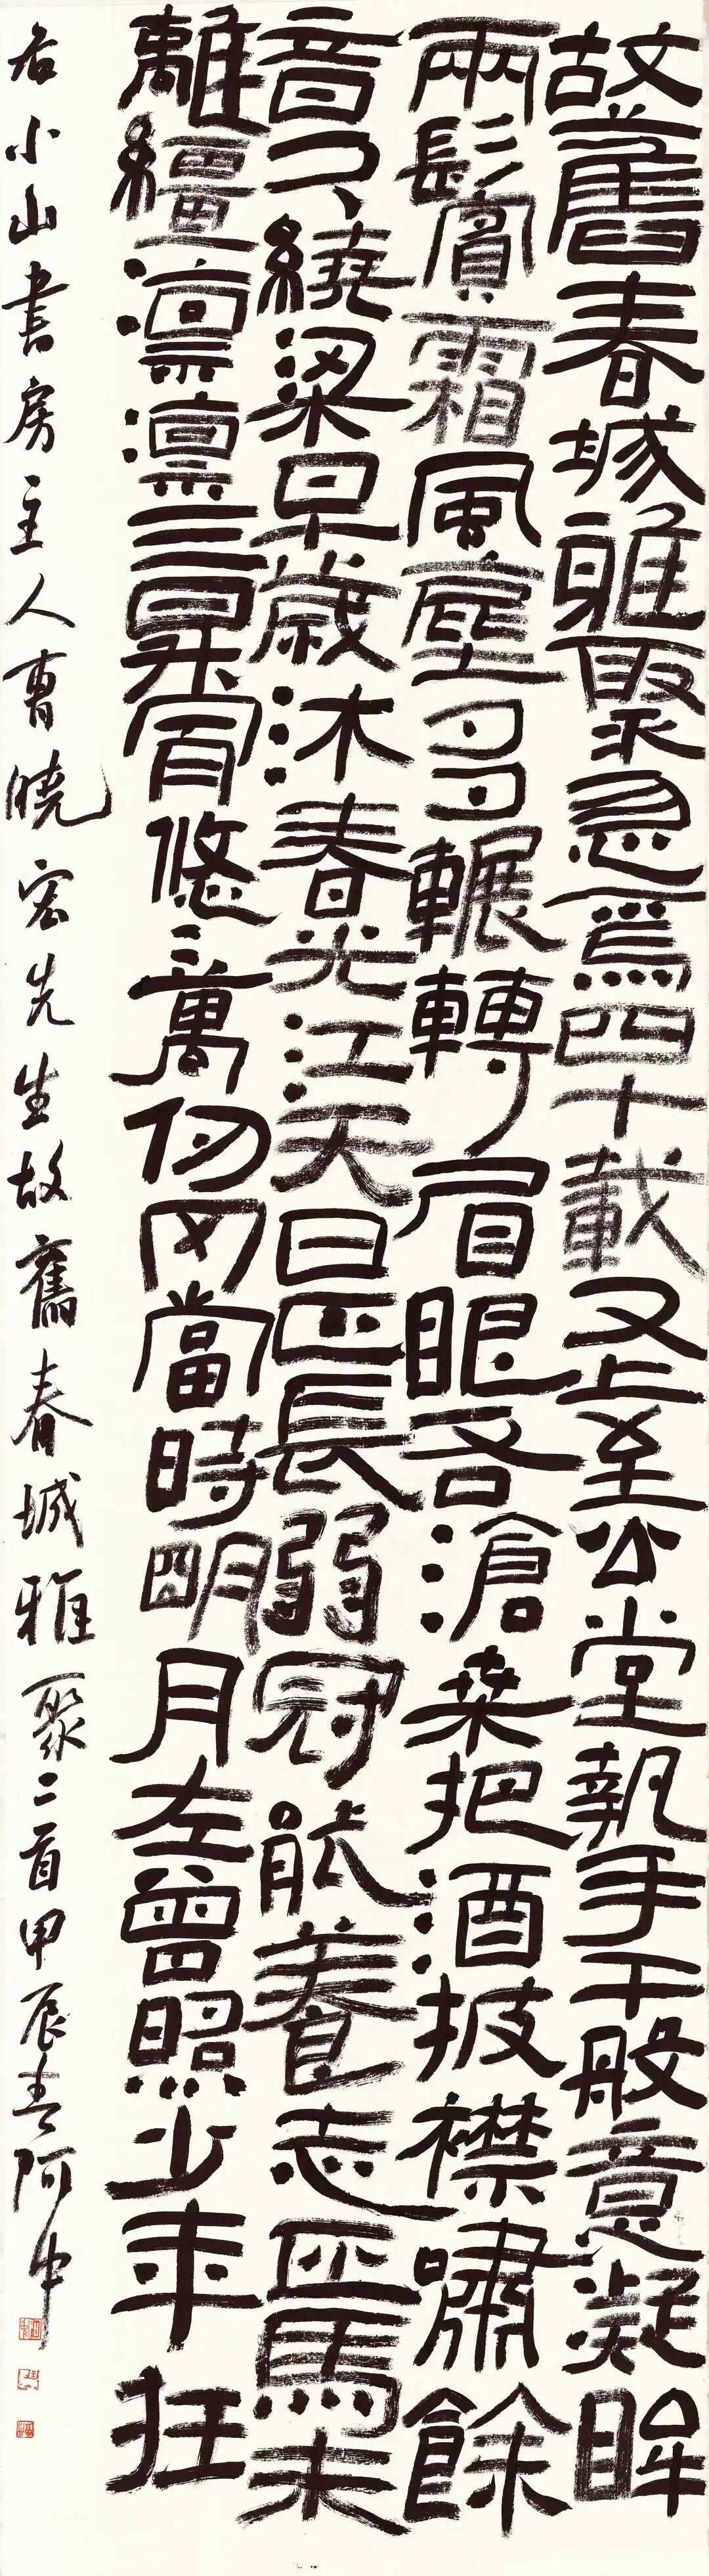 故舊春城雅聚忽焉四十載又上至公堂執手千般意凝眸
兩鬢霜風塵多輾轉眉眼各滄桑把酒披襟嘯餘
音久繞梁早歲沐春光江天日正長弱冠能養志匹馬未
離繮凜凜三更宵悠々萬仞岡當時明月在曾照少年狂
右小山書房主人曹曉宏先生故舊春城雅聚二首甲辰春阿中